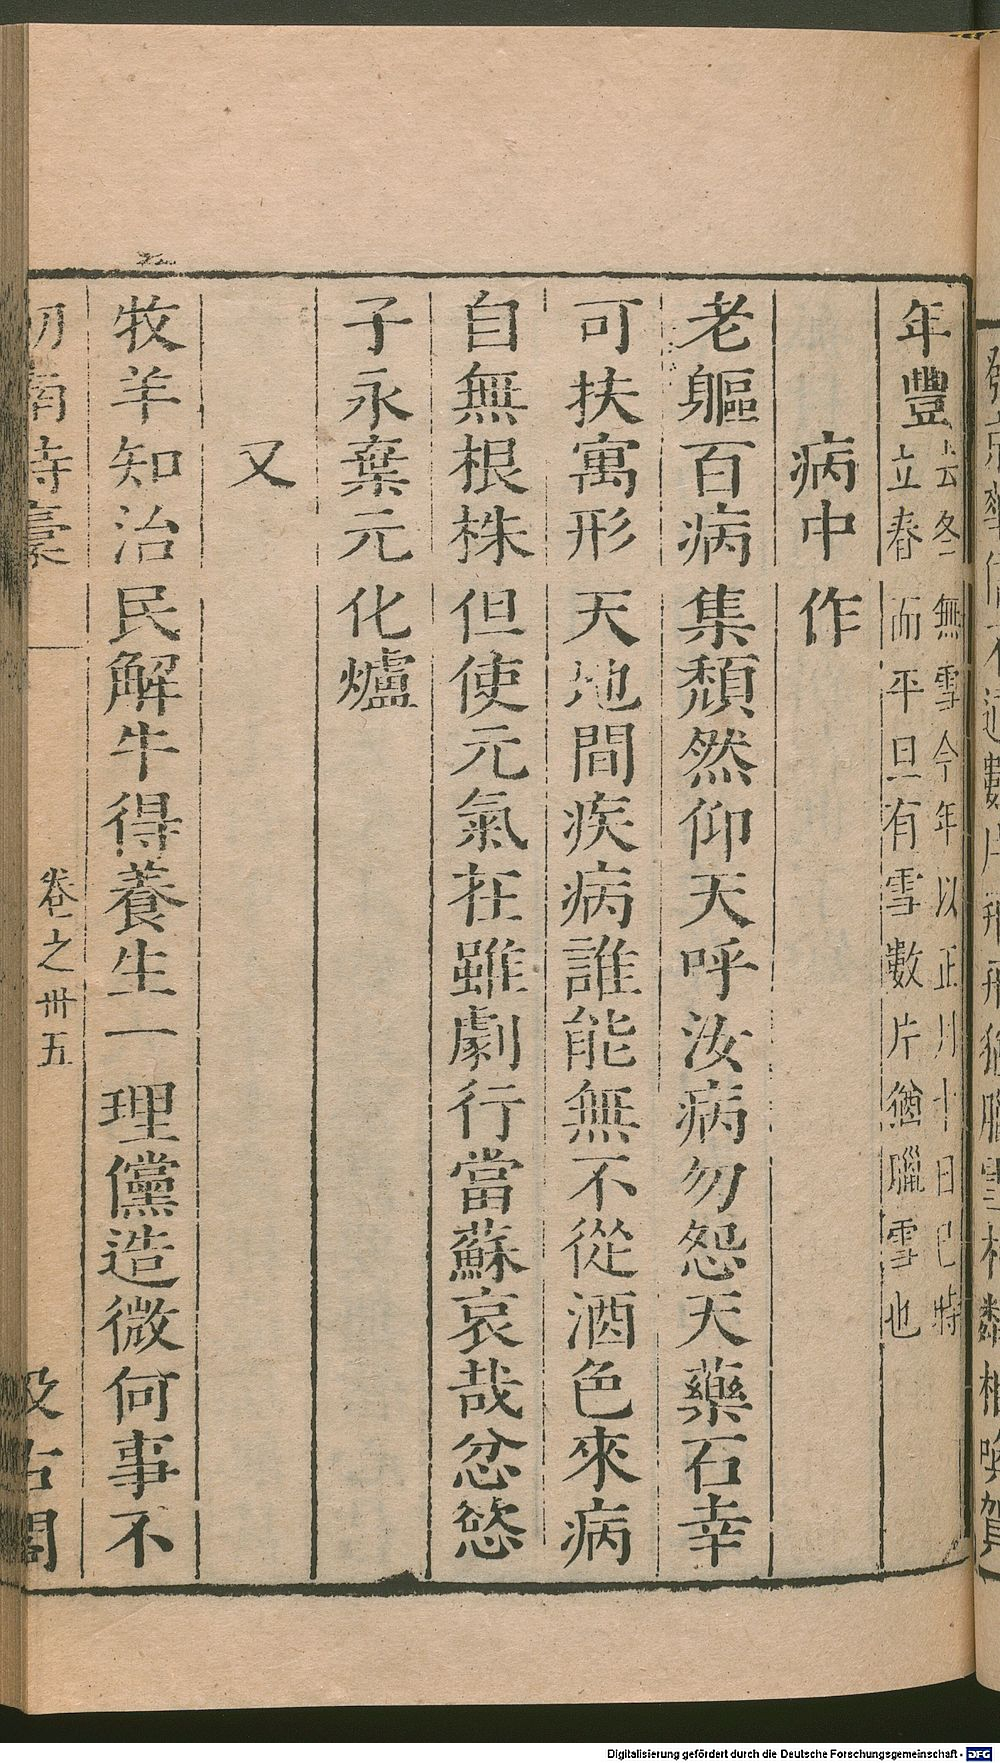 年豐去冬無雪今年以正月十日巳時
立春而平旦有雪數片猶臘雪也
病中作
老軀百病集頹然仰天呼汝病勿怨天藥石幸
可扶寓形天地間疾病誰能無不從酒色來病
自無根株但使元氣在雖劇行當蘇哀哉忿慾
子永棄元化爐
又
牧羊知治民解牛得養生一理儻造微何事不
劍南詩稾 卷之卅五 汲古閣
Digitalisierung gefördert durch die Deutsche Forschungsgemeinschaft - DFG